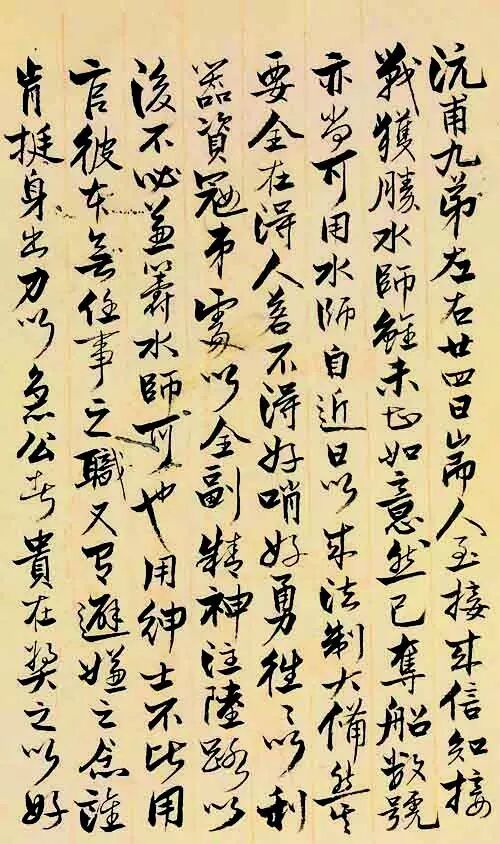 沅甫九弟左右廿四日耑人至接來信知接
戰獲勝水師雖未甚如意然已奪船數號
亦尚可用水師自近日以來法制大備然其
要全在得人若不得好哨好勇往〻以利
器資寇弟處以全副精神注陸路以
後不必兼籌水師可也用紳士不比用
官彼本無任事之職又有避嫌之念誰
肯挺身出力以急公者貴在獎之以好